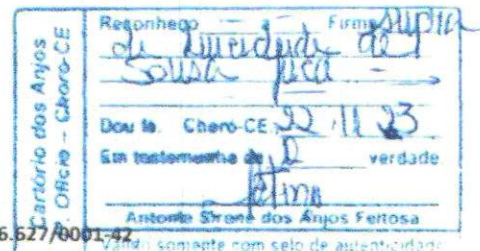 Cartório dos Anjos
Ofício - Choró-CE
Reconheço Firma supra
de Lucidade de
Sousa Jucá
Dou fé. Choró-CE, 22 / 11 23
Em testemunho da verdade
Antonia Sirene dos Anjos Feitosa
6.627/0001-42
Válido somente com selo de autenticidade